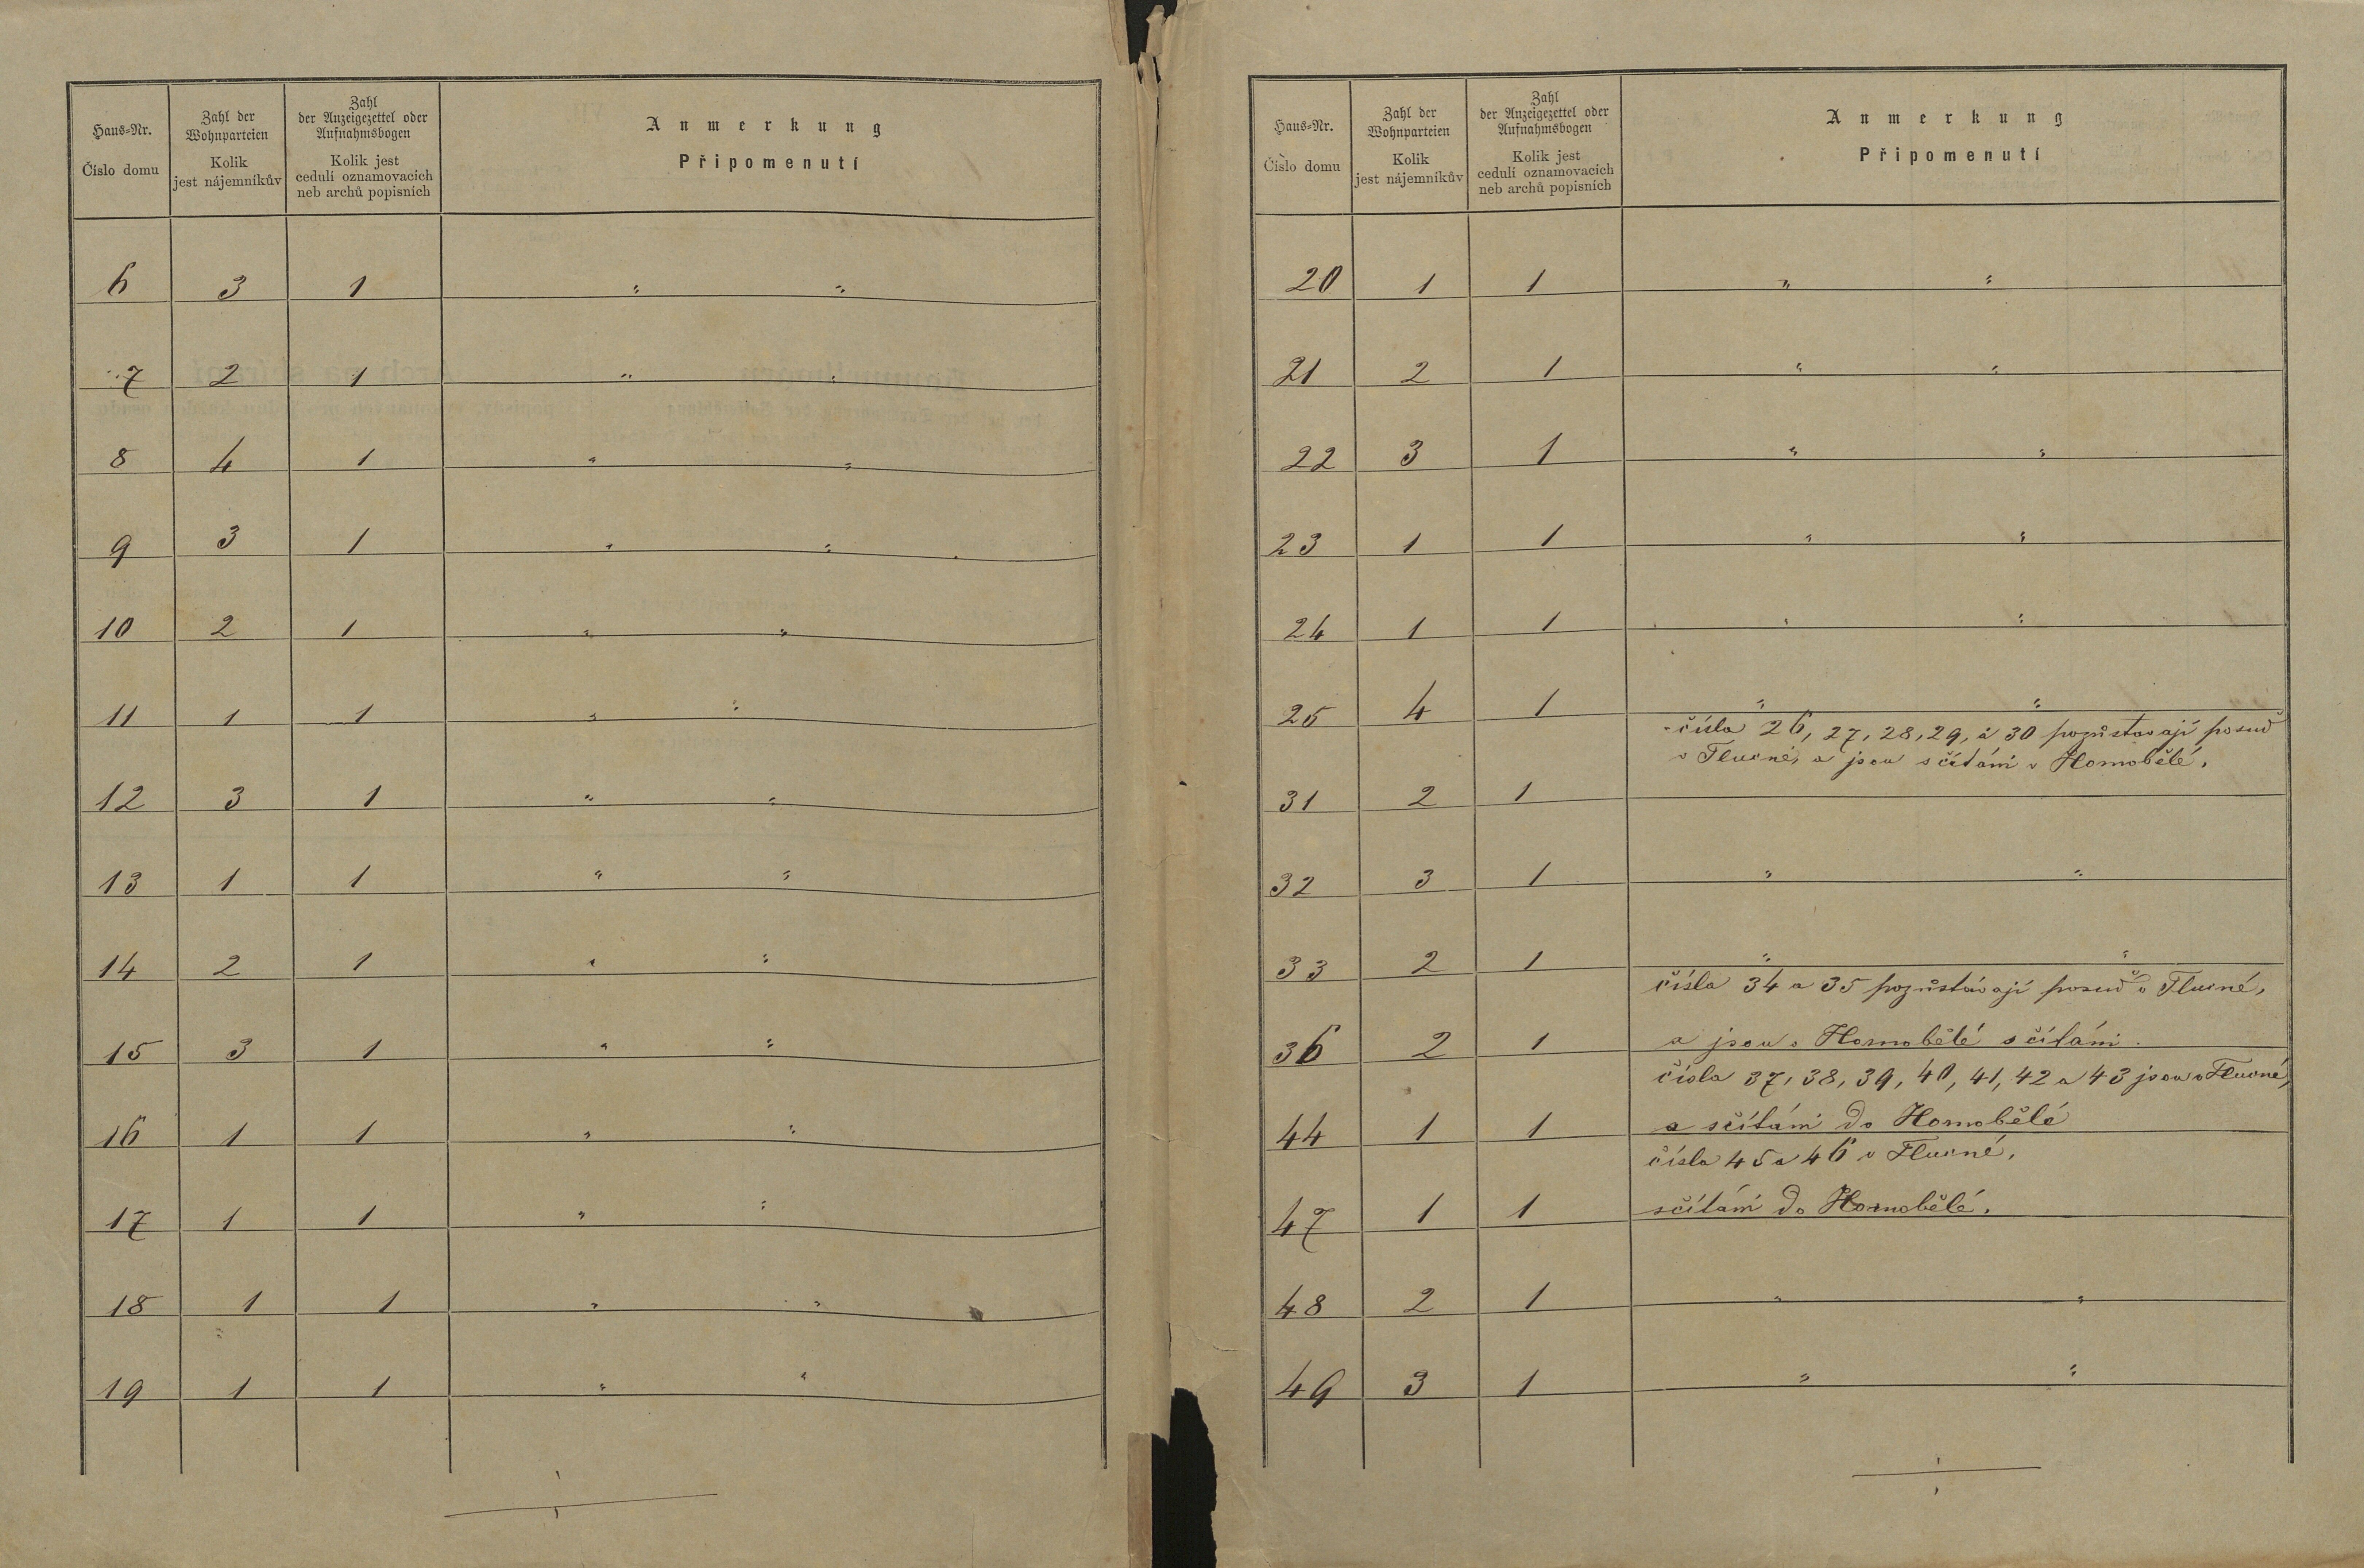 Haus-Nr.
Číslo domu
Zahl der
Wohnparteien
Kolik
jest nájemníkův
Zahl
der Anzeigezettel oder
Aufnahmsbogen
Kolik jest
cedulí oznamovacích
neb archů popisních
Anmerkung
Připomenutí
6 3 1 " "
7 2 1 " "
8 4 1 " "
9 3 1 " "
10 2 1 " "
11 1 1 " "
12 3 1 " "
13 1 1 " "
14 2 1 " "
15 3 1 " "
16 1 1 " "
17 1 1 " "
18 1 1 " "
19 1 1 " "
Haus-Nr.
Číslo domu
Zahl der
Wohnparteien
Kolik
jest nájemníkův
Zahl
der Anzeigezettel oder
Aufnahmsbogen
Kolik jest
cedulí oznamovacích
neb archů popisních
Anmerkung
Připomenutí
20 1 1 " "
21 2 1 " "
22 3 1 " "
23 1 1 " "
24 1 1 " "
25 4 1 " "
čísla 26, 27, 28, 29, a 30 pozůstavají posud
v Tlucné, a jsou sčítáni v Hornobělé,
31 2 1
32 3 1 " "
33 2 1 " "
čísla 34 a 35 pozůstávají posud v Tlucné,
36 2 1 a jsou v Hornobělé sčítáni.
čísla 37, 38, 39, 40, 41, 42 a 43 jsou v Tlucné,
44 1 1 a sčítáni do Hornobělé
čísla 45 a 46 v Tlucné,
47 1 1 sčítáni do Hornobělé.
48 2 1 " "
49 3 1 " "